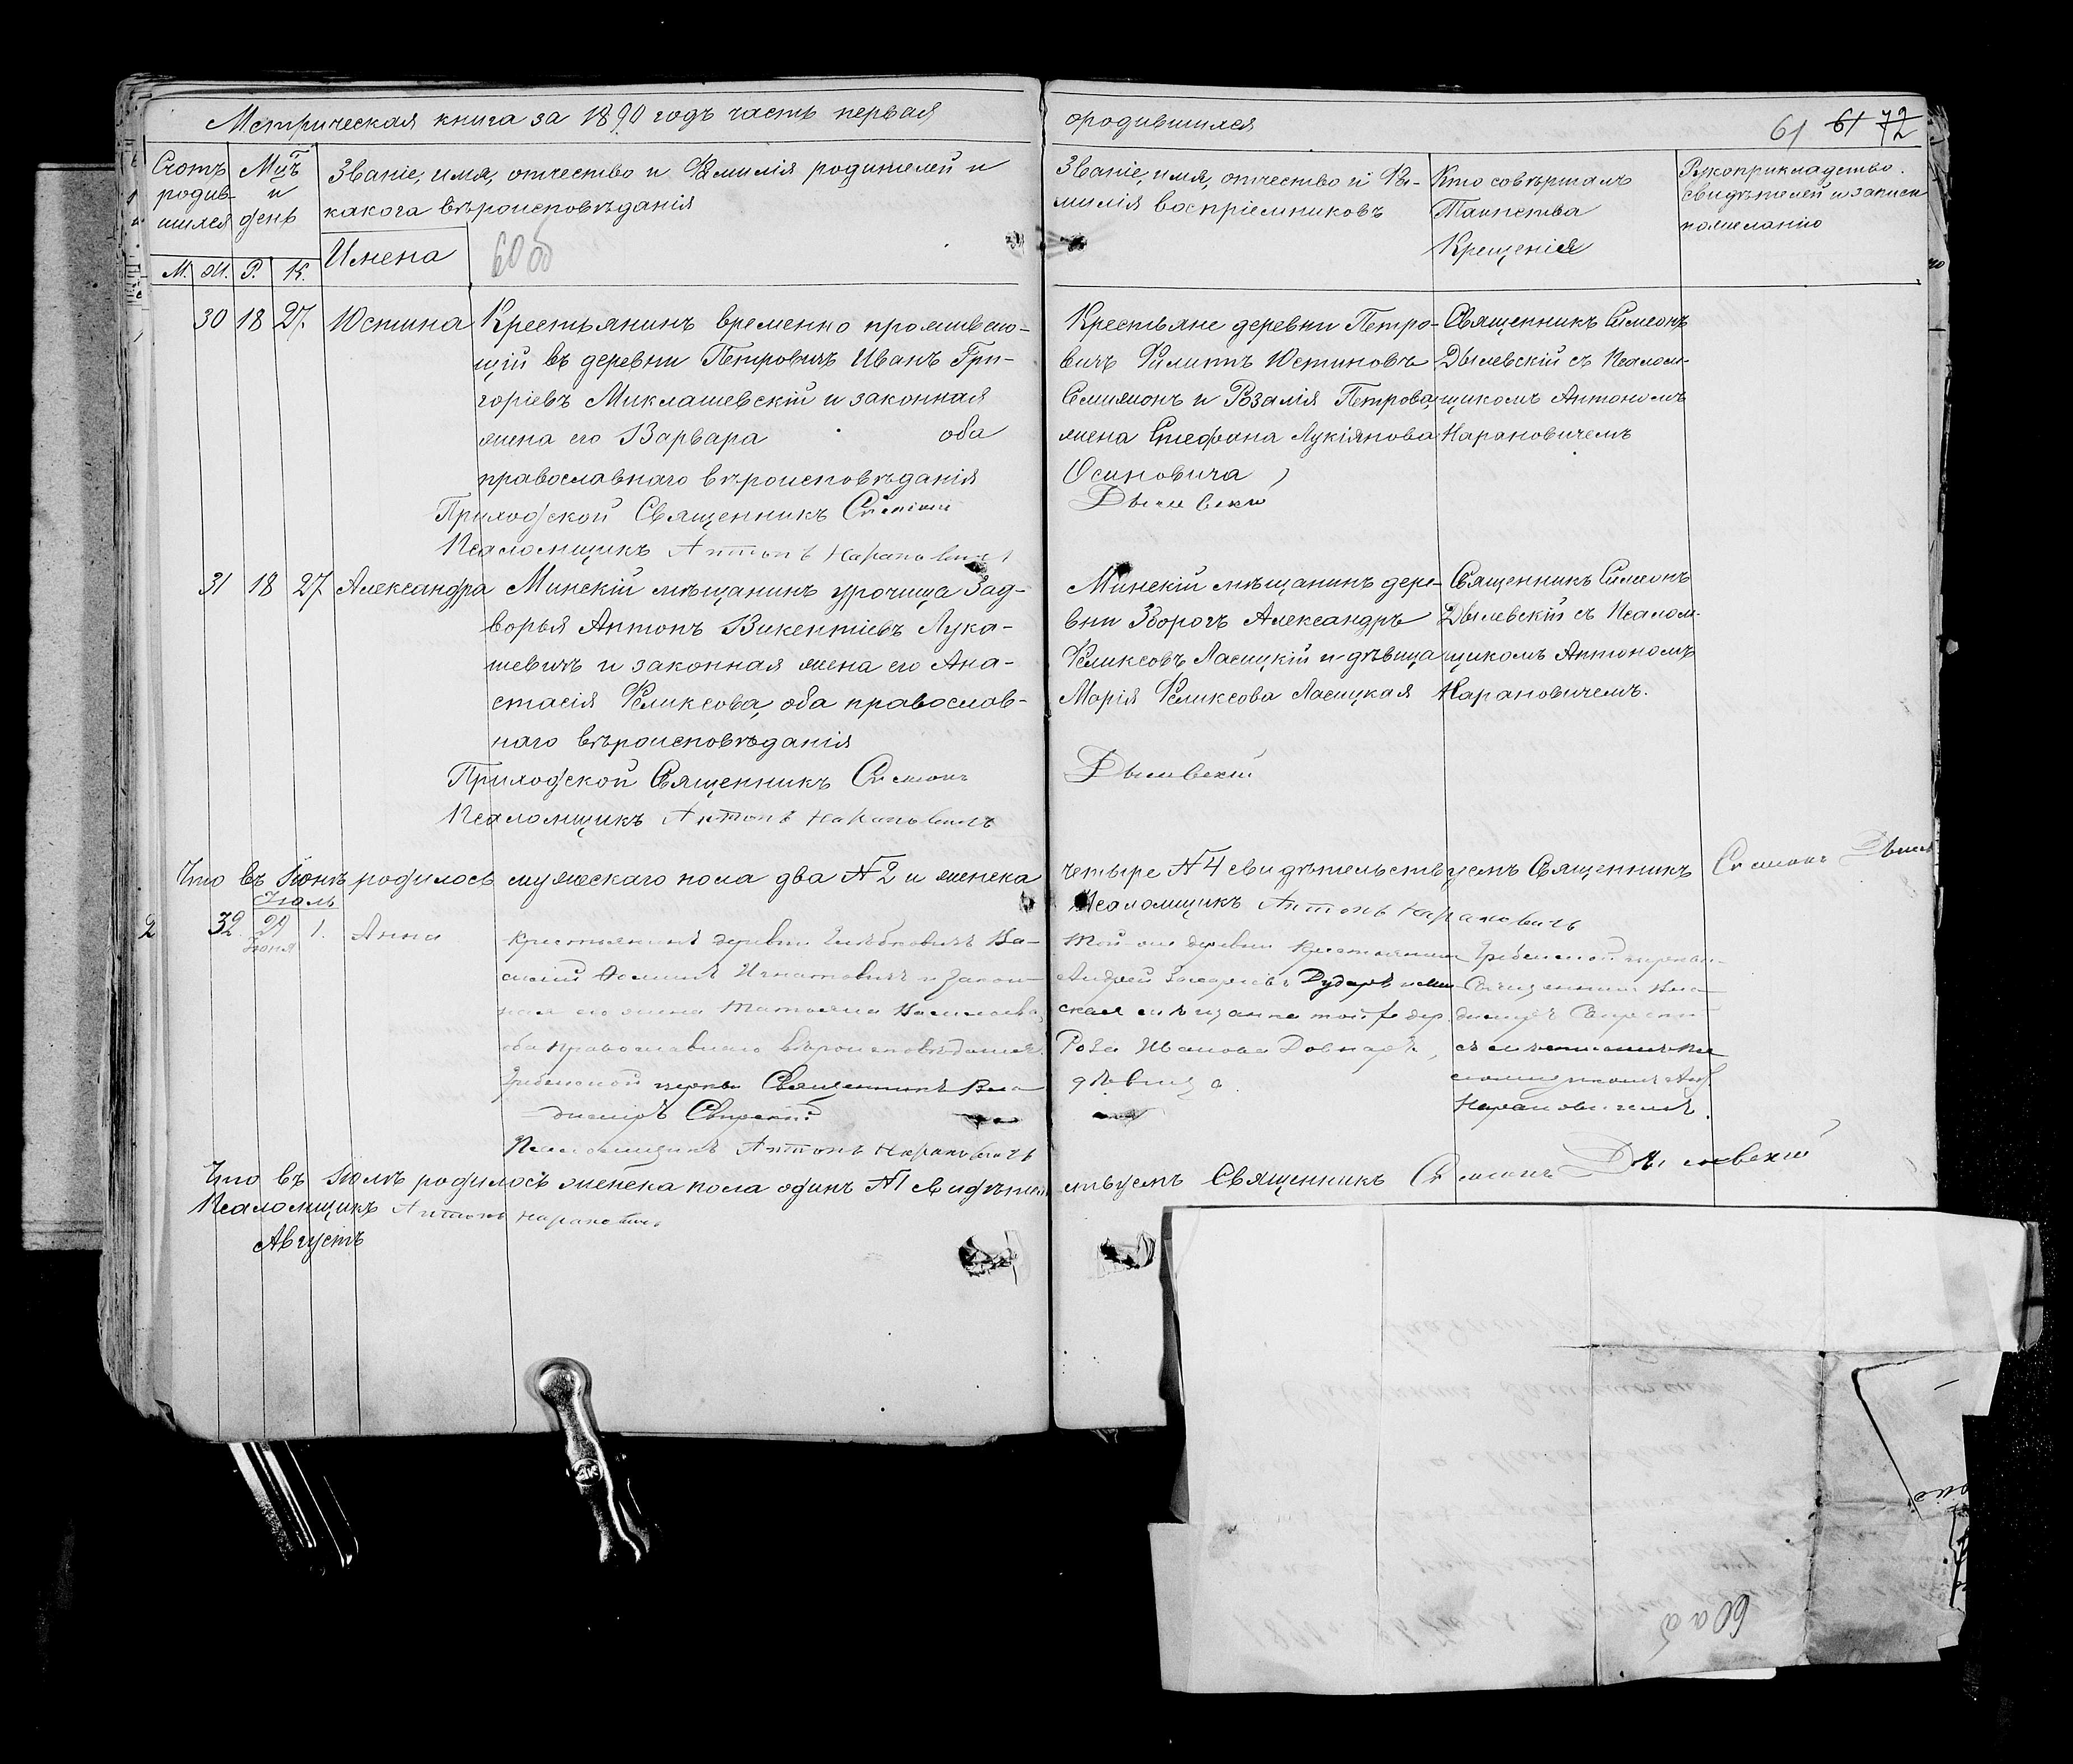 Метрическая книга за 1890 годъ часть первая
ородившихся
61 61 72
Счотъ родив- шихся
Мцъ и день
Званіе, имя, отчество и Фамилія родителей и
какога вѣроисповѣданія
Имена
60 об
М. Ж. Р. К.
Званіе, имя, отчество и Фа-
милія воспріемниковъ
Кто совѣршалъ
Таинства
Крещенія
Рукоприкладство
свидѣтелей и записи
пожеланію
30 18 27. Юстина
Крестьянинъ временно проживаю-
щій въ деревни Петровичъ Иванъ Гри-
горіевъ Миклашевскій и законная
жена его Варвара оба
православнаго вѣроисповѣданія
Приходской Священникъ Симеонъ
Псаломщикъ Антонъ Нарановичъ
Крестьяне деревни Петро-
вичъ Филипъ Юстиновъ
Семимонъ и Розалія Петрова,
жена Стефана Лукіянова
Осиновича
Дылевскій
Священникъ Симеонъ
Дылевскій съ Псалом-
щикомъ Антономъ
Нарановичемъ
31 18 27 Александра
Минскій мѣщанинъ урочища Зад-
ворья Антонъ Викентіевъ Лука-
шевичъ и законная жена его Ана-
стасія Феликсова, оба православ-
наго вѣроисповѣданія
Приходской Священникъ Симеонъ
Псаломщикъ Антонъ Нарановичъ
Минскій мѣщанинъ дере-
вни Збороч Александръ
Феликсовъ Ласицкій и дѣвица
Марія Феликсова Ласицкая
Дылевскій
Священникъ Симеонъ
Дылевскій съ Псалом-
щикомъ Антономъ
Нарановичемъ.
Что въ Іюнѣ родилось мужескаго пола два №2 и женска
четыре №4 свидѣтельствуемъ Священникъ Симеонъ Дылев
Псаломщикъ Антонъ Нарановичъ
Іюль
2 32. 29 1. Анна
Іюня
Крестьянинъ деревни Глѣбковичъ Ва-
силій Игнатовичъ и закон-
ная его жена Татьяна Василіева,
оба православнаго вѣроисповѣданія.
Гребенской церкви Священникъ Вла-
диміръ
Псаломщикъ Антонъ Нарановичъ
Той-же деревни Крестьянинъ
Андрей Захаріевъ Дударъ и Мин-
ская мѣщанка той же дер.
Роза Иванова Довнаръ,
дѣвица.
Гребенской церкви
Священникъ Вла-
диміръ
Нарановичемъ.
Что въ Іюлѣ родилось женска пола одинъ №1 свидѣтель
ствуемъ Священникъ Симеонъ Дылевскій
Псаломщикъ Антонъ Нарановичъ
Августъ
60 а б